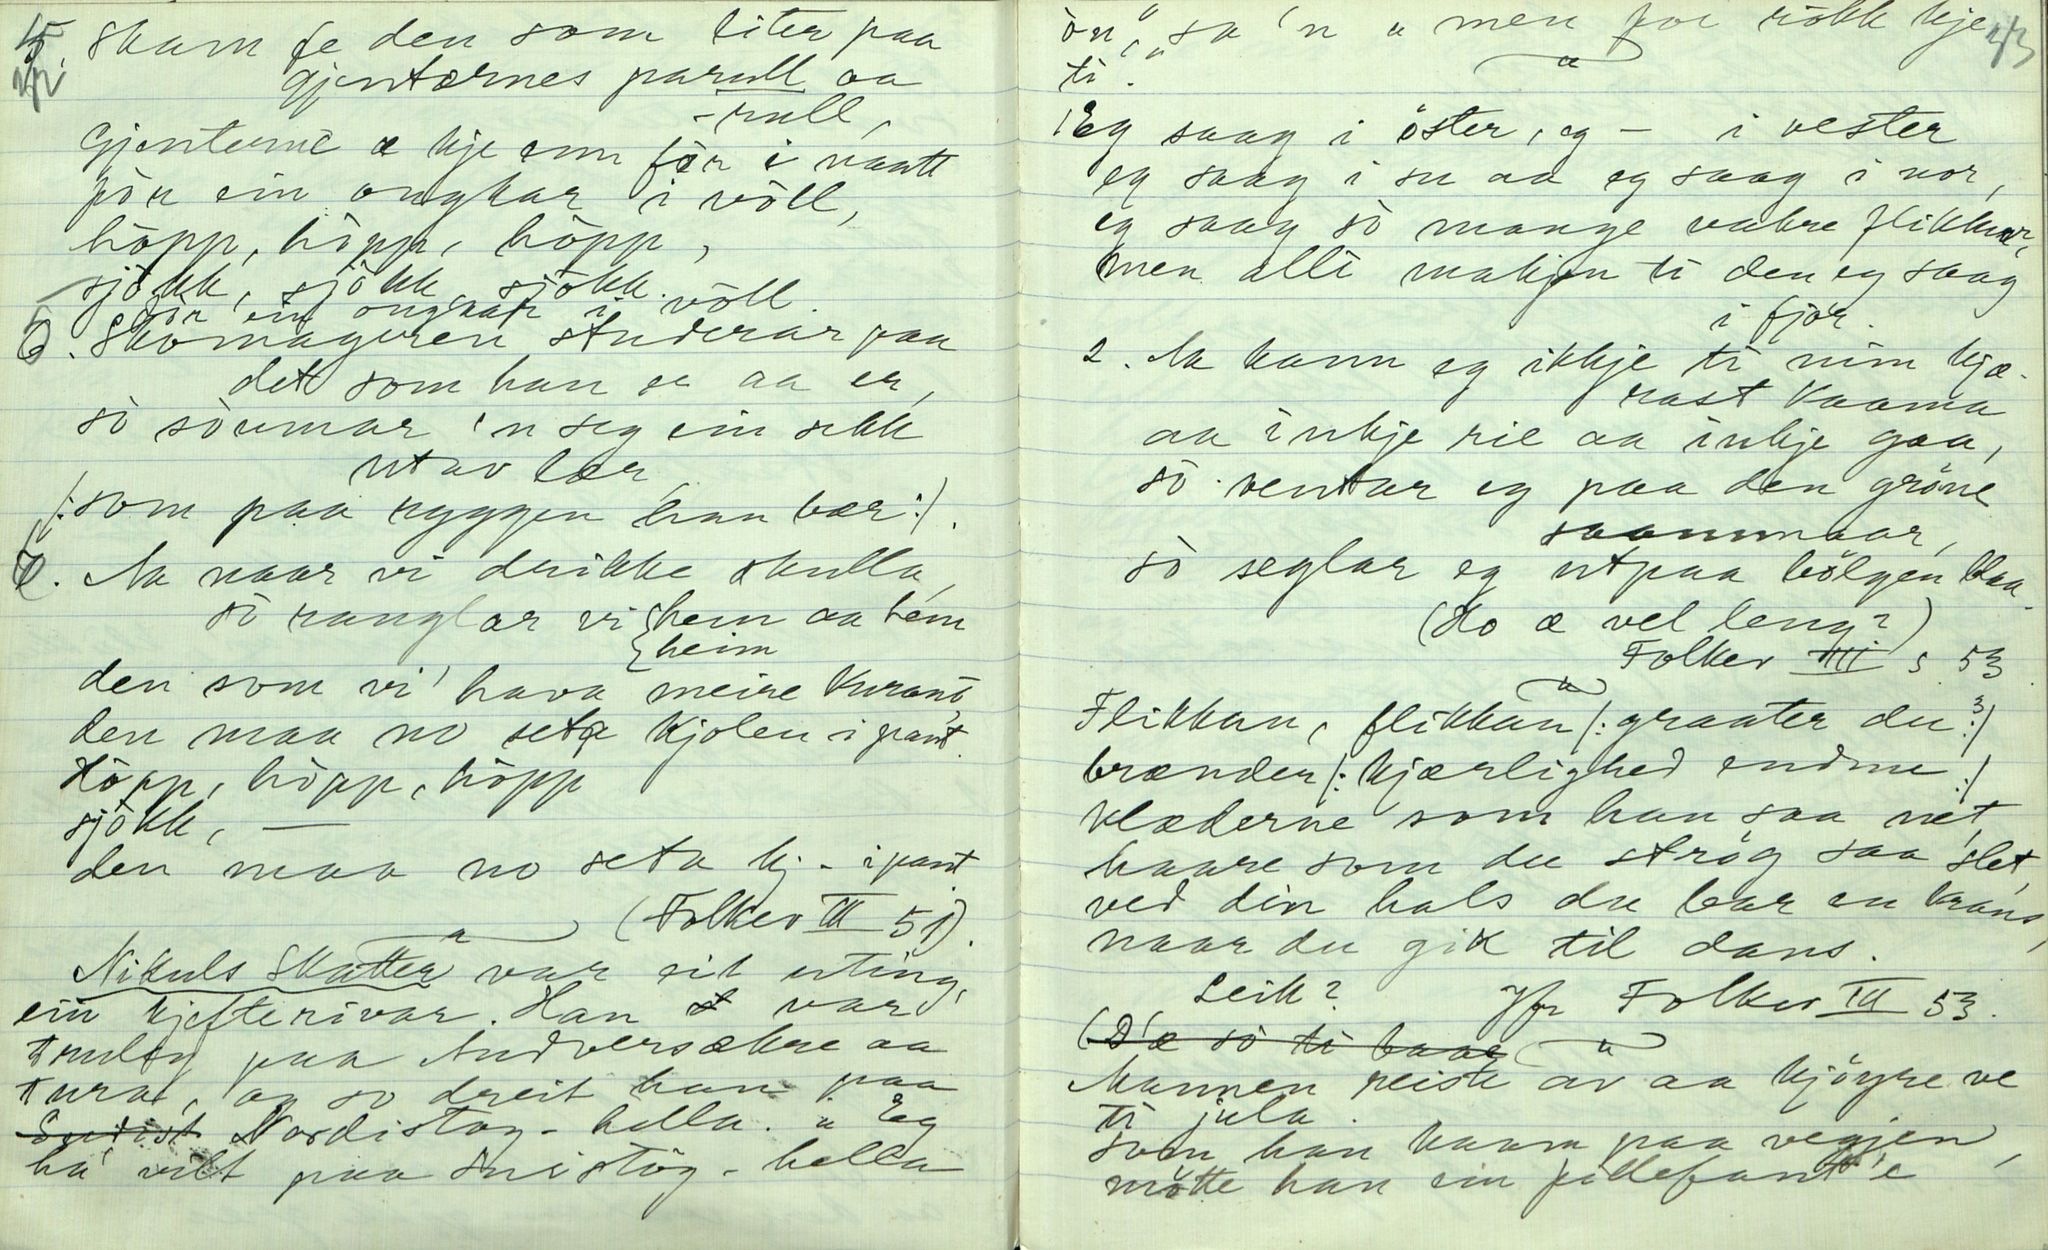 5. Skam fe den som liter paa
gjentœrnes parull aa
- rull,
Gjenterne æ kje enn før i vantt
før ein ongkar i völl,
höpp, höpp, höpp,
sjökk, sjökk, sjökk.
för ein ongkar i völl.
6. Skomageren studerar paa
det som han er aa er,
sò sòumar 'n seg ein sekk
utav lær,
/: som paa ryggen han bær :/.
7. Aa naar vi drikke skulla,
sò ranglar vi hem aa hem
heim
den som vi hava meire kurant,
den maa no seta kjolen i pant.
Höpp, höpp, höpp
sjökk, —
den maa no seta kj - i pant
(Folkev III 51).
Nikuls Skatter var eit uting,
ein kjefterivar. Han var
paa Nudversækre aa
tura, og so dreit han paa
Nordistog-hella. "Eg
ha vilt paa Suistög-hella
43
òn", sa 'n "men for rökk kje
ti".
1 Eg saag i öster, eg — i vester
eg saag i su aa eg saag i nor,
eg saag sò mange vakre flikkur,
men alli makjen ti den eg saag
i fjor.
2. Aa kann eg ikkje ti min kjæ-
rast kaama
aa inkje rie aa inkje gaa,
sò ventar eg paa den gröne
saammaar,
sò seglar eg utpaa bölgen blaa.
(Ho æ vel leng?)
Folkev III s 53.
Flikkan, flikkan /: graater du :/ 3
brænder /: kjærlighed endnu :/
klæderne som han saa net,
haare som du strög saa slet,
ved din hals du bar en krans,
naar du gik til dans.
Leik? Jfr Folkev III 53.
(D'æ sò ti baae
Mannen reiste av aa kjöyre ve
ti jula.
som han kaam paa vegjen,
mötte han ein fillefant'e